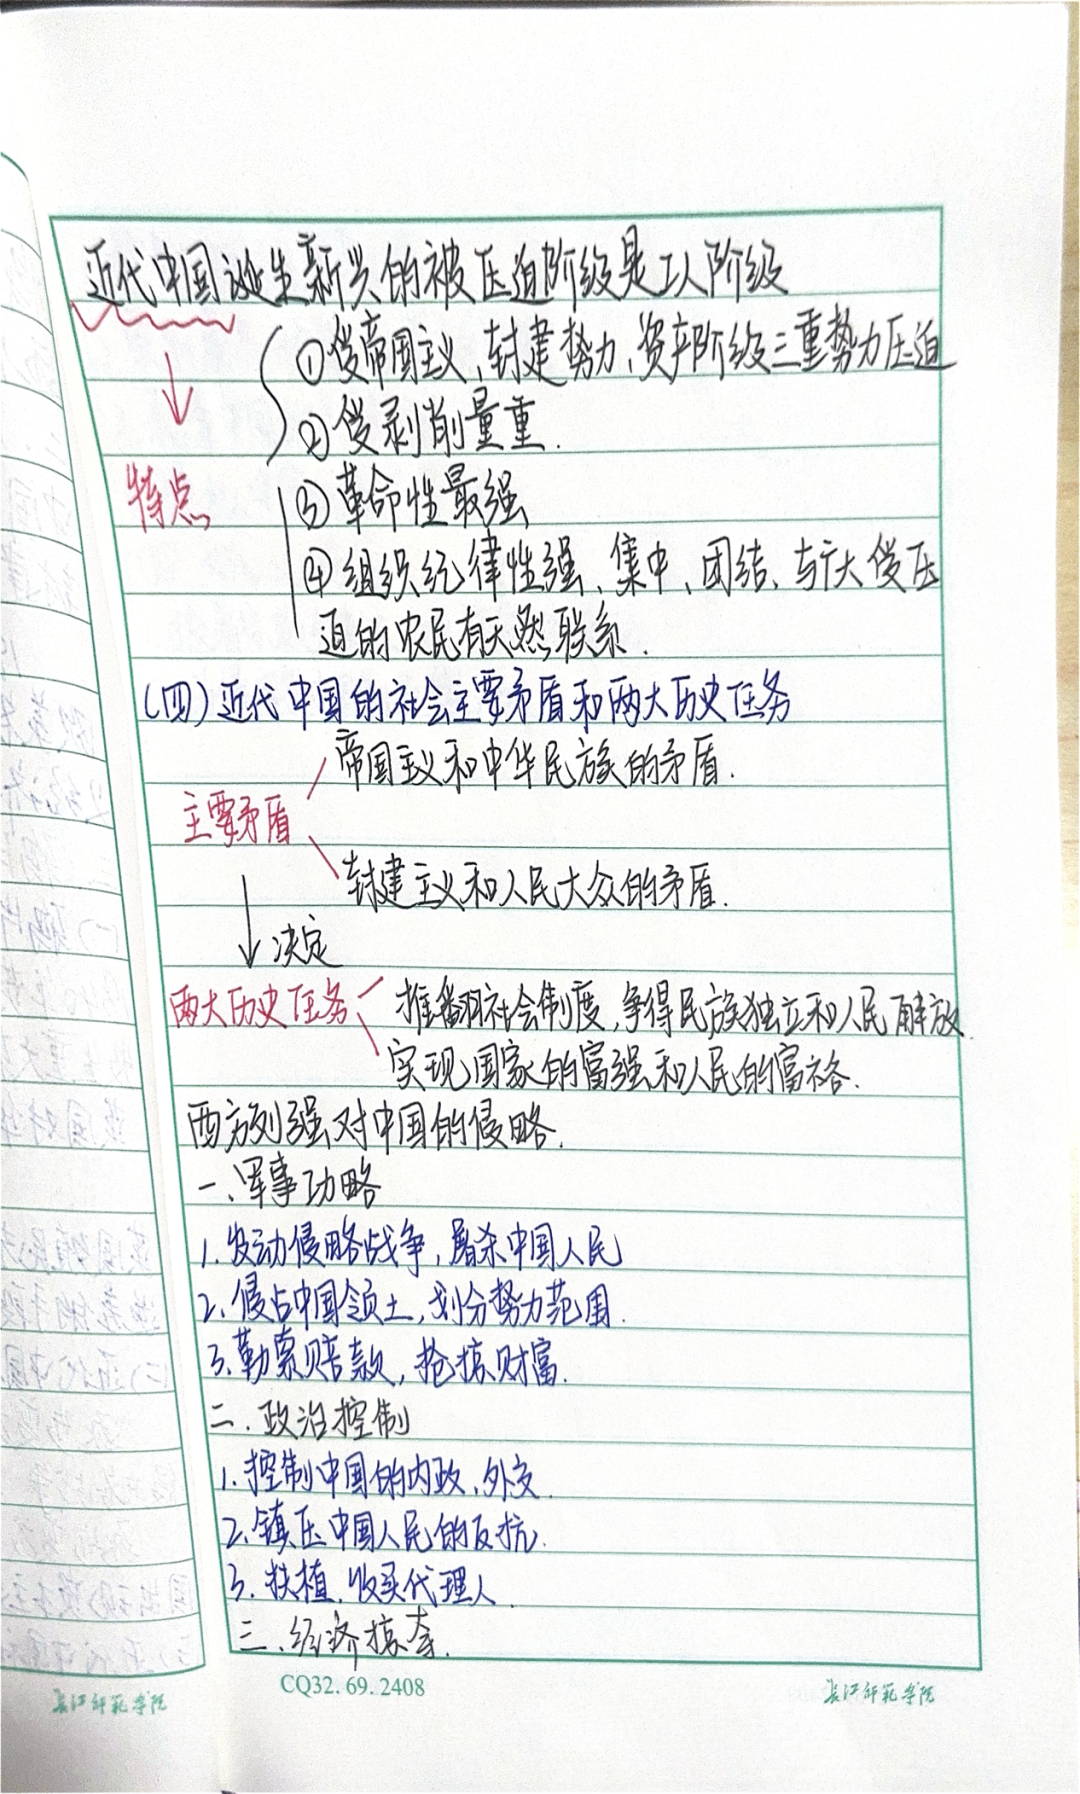 近代中国诞生新兴的被压迫阶级是工人阶级
①受帝国主义、封建势力、资产阶级三重势力压迫
②受剥削量重.
特点
③革命性最强
④组织纪律性强、集中、团结、与广大受压
迫的农民有天然联系.
(四)近代中国的社会主要矛盾和两大历史任务
帝国主义和中华民族的矛盾.
主要矛盾
封建主义和人民大众的矛盾.
决定
两大历史任务
推翻社会制度,争得民族独立和人民解放.
实现国家的富强和人民的富裕.
西方列强对中国的侵略.
一、军事功略
1.发动侵略战争,屠杀中国人民
2.侵占中国领土,划分势力范围.
3.勒索赔款,抢掠财富.
二.政治控制
1.控制中国的内政、外交.
2.镇压中国人民的反抗.
3.扶植、收买代理人.
三.经济掠夺.
CQ32.69.2408
长江师范学院
长江师范学院